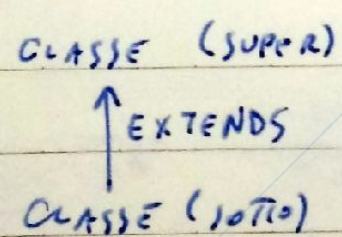 CLASSE (SUPER)
EXTENDS
CLASSE (SOTTO)